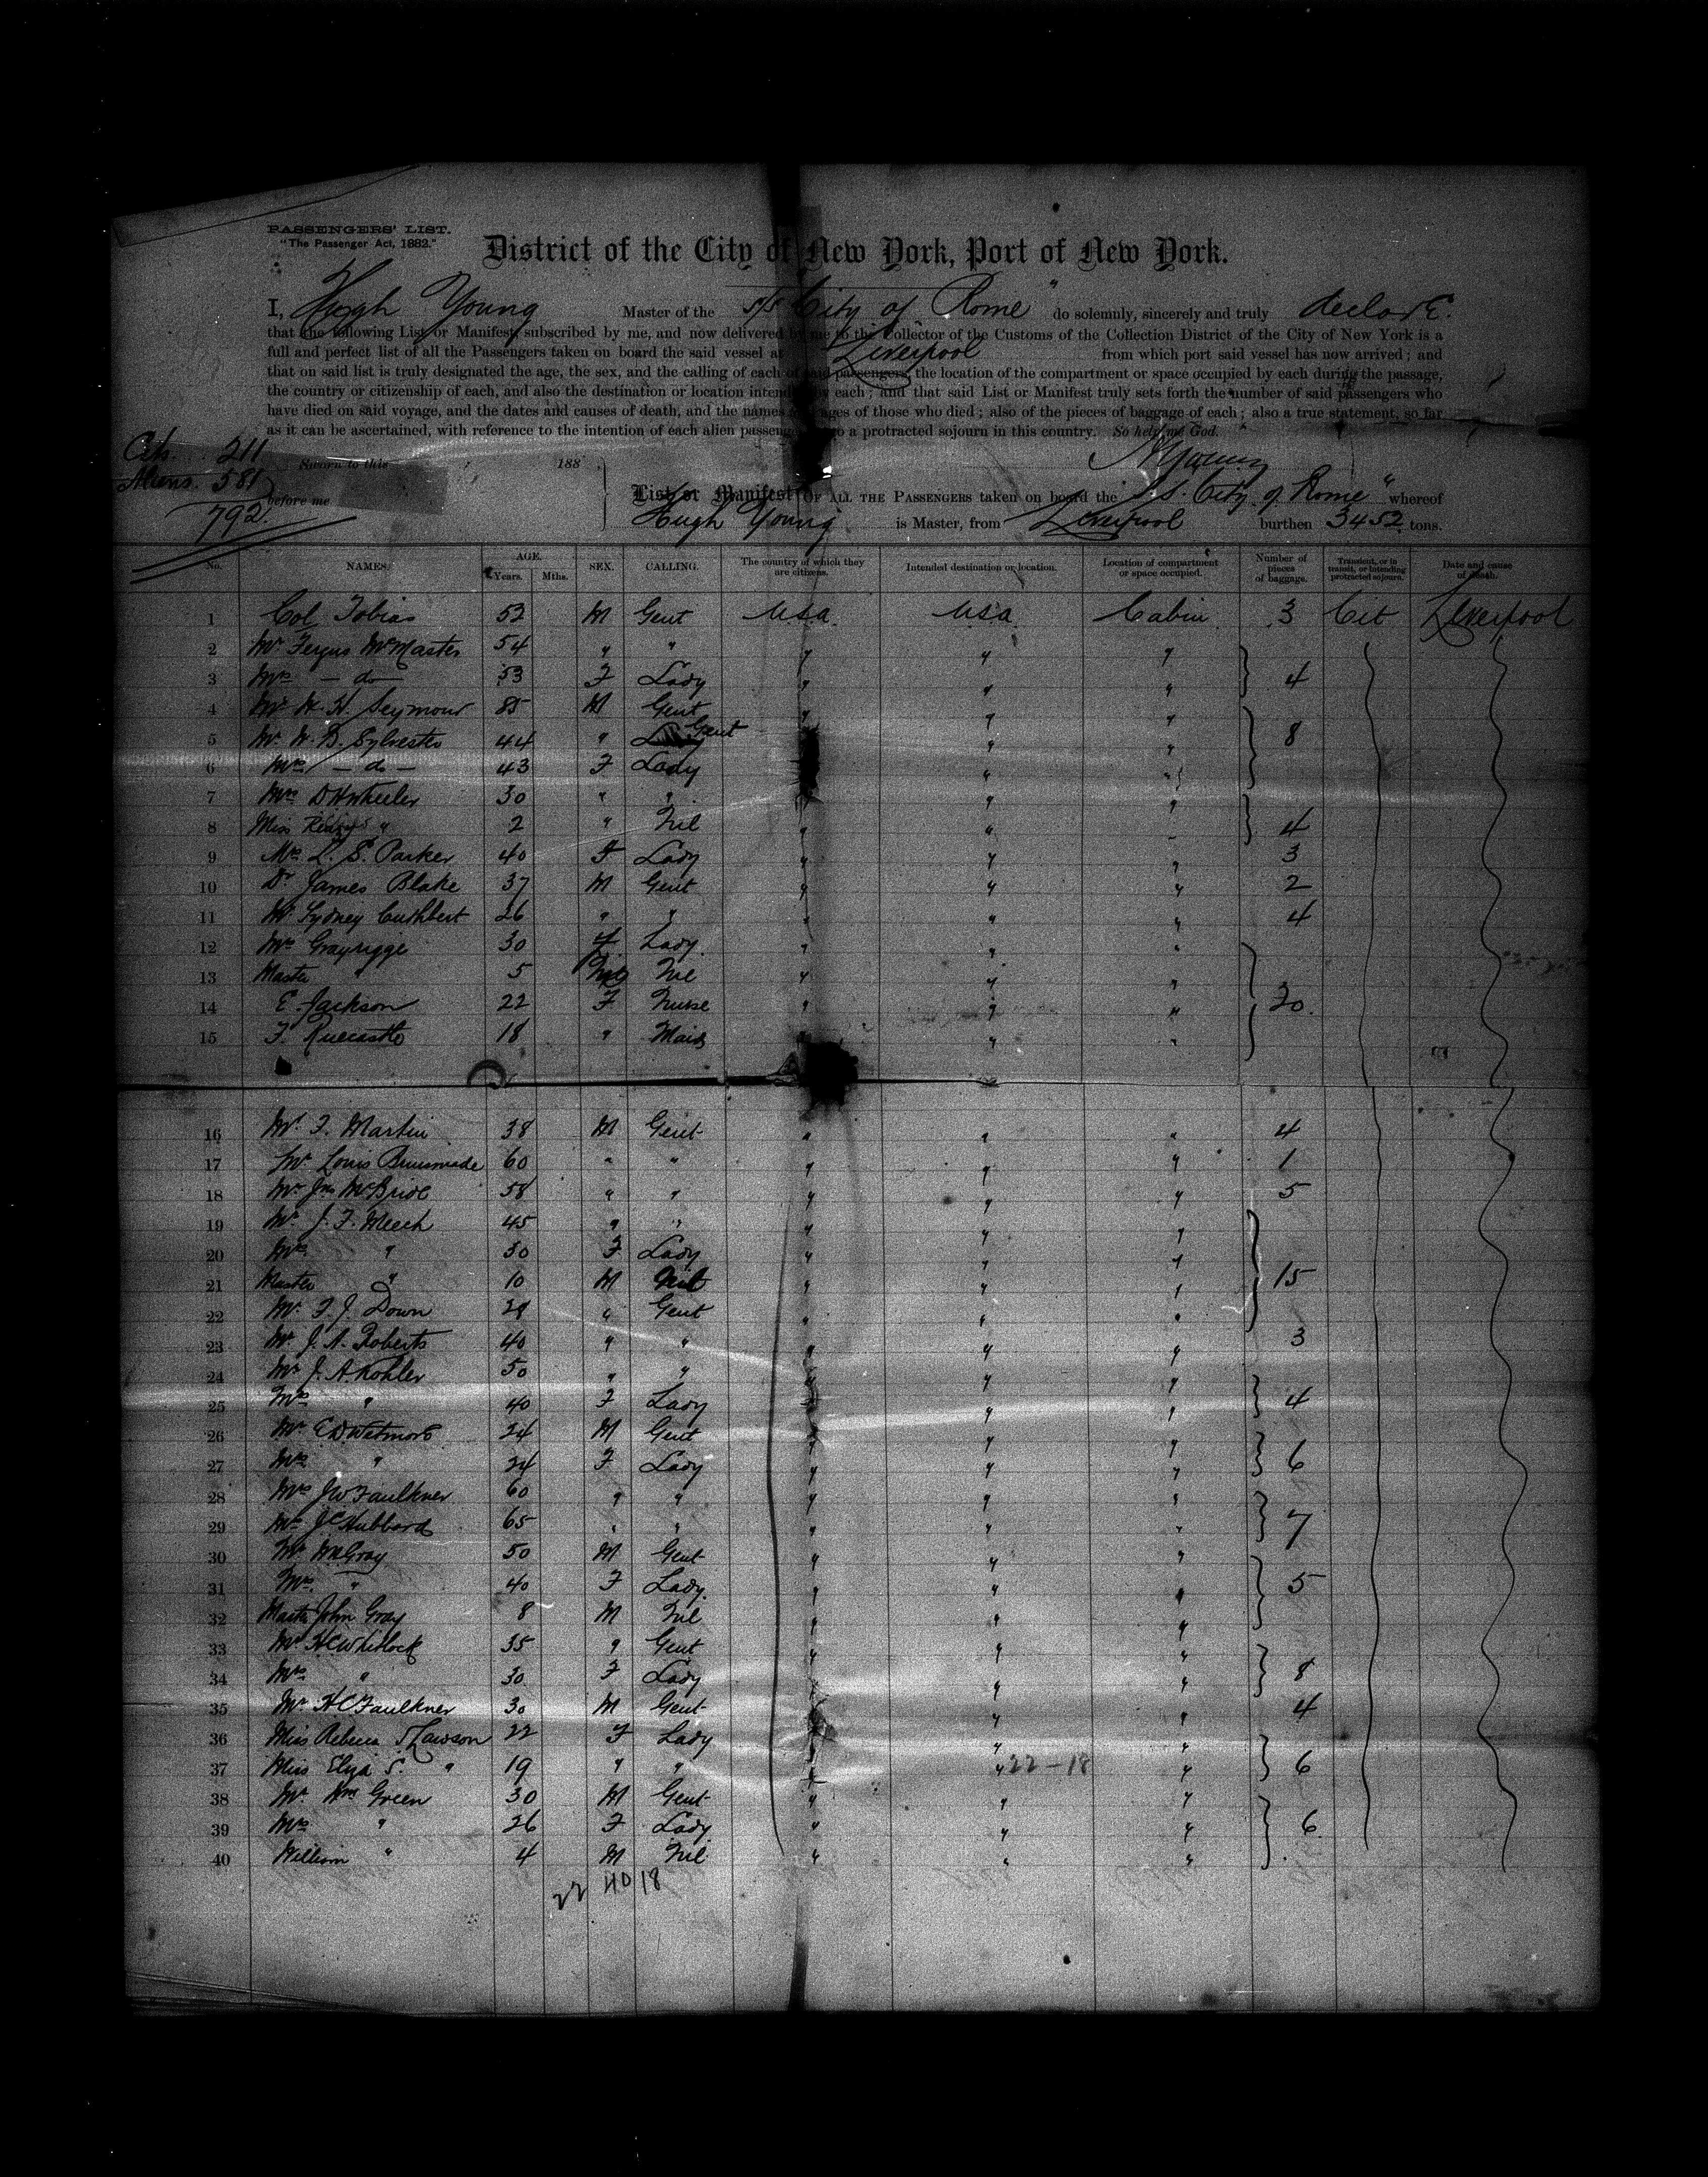 PASSENGERS' LIST.
"The Passenger Act, 1882."
District of the City of New York, Port of New York.
I, Hugh Young Master of the s/s City of Rome" do solemnly, sincerely and truly declare.
that the following List or Manifest, subscribed by me, and now delivered by me to the Collector of the Customs of the Collection District of the City of New York is a
full and perfect list of all the Passengers taken on board the said vessel at Liverpool from which port said vessel has now arrived; and
that on said list is truly designated the age, the sex, and the calling of each of said passengers, the location of the compartment or space occupied by each during the passage,
the country or citizenship of each, and also the destination or location intended by each; and that said List or Manifest truly sets forth the number of said passengers who
have died on said voyage, and the dates and causes of death, and the names and ages of those who died; also of the pieces of baggage of each; also a true statement, so far
as it can be ascertained, with reference to the intention of each alien passenger to a protracted sojourn in this country. So help me God.
Cits. 211
Aliens. 581
792.
Sworn to this 188
before me
H Young
List or Manifest OF ALL THE PASSENGERS taken on board the S.S. City of Rome" whereof
Hugh Young is Master, from Liverpool burthen 3452 tons.
No. NAMES. AGE. Years. Mths. SEX. CALLING. The country of which they are citizens. Intended destination or location. Location of compartment or space occupied. Number of pieces of baggage. Transient, or in transit, or intending protracted sojourn. Date and cause of death.
1 Col Tobias 52 M Gent USA. USA. Cabin 3 Cit Liverpool
2 Mr Fergus McMaster 54 " " " " "
3 Mrs — do — 53 F Lady " " " 4
4 Mr W. H. Seymour 85 M Gent " " "
5 Mr W. B. Sylvester 44 " Gent " " " 8
6 Mrs — do — 43 F Lady " " "
7 Mrs D H Wheeler 30 " " " " "
8 Miss " 2 " Nil " " " 4
9 Mrs L. S. Parker 40 F Lady " " " 3
10 Dr James Blake 37 M Gent " " " 2
11 Mr Sydney Cuthbert 26 " " " " " 4
12 Mrs Grayrigge 30 F Lady " " "
13 Master " 5 Nil " " "
14 E. Jackson 22 F Nurse " " " 20.
15 F. Ruecastle 18 " Maid " " "
16 Mr F. Martin 38 M Gent " " " 4
17 Mr Louis 60 " " " " " 1
18 Mr Jno McBride 58 " " " " " 5
19 Mr J. F. Meech 45 " " " " "
20 Mrs " 30 F Lady " " "
21 Master " 10 M Nil " " " 15
22 Mr F. J. Down 28 " Gent " " "
23 Mr J. A. Roberts 40 " " " " " 3
24 Mr J. A. Kohler 50 " " " " "
25 Mrs " 40 F Lady " " " 4
26 Mr E D Wetmore 24 M Gent " " "
27 Mrs " 24 F Lady " " " 6
28 Mrs J W Faulkner 60 " " " " "
29 Mrs J C Hubbard 65 " " " " " 7
30 Mr Wm Gray 50 M Gent " " "
31 Mrs. " 40 F Lady. " " " 5
32 Master John Gray 8 M Nil " " "
33 Mr H C Whitlock 35 " Gent " " "
34 Mrs " 30 F Lady " " " 8
35 Mr H C Faulkner 30 M Gent " " " 4
36 Miss Rebecca T Lawson 22 F Lady " " "
37 Miss Eliza S. " 19 " " " " 22-18 " 6
38 Mr Wm Green 30 M Gent " " "
39 Mrs " 26 F Lady " " " 6
40 William " 4 M Nil " " "
22 40 18